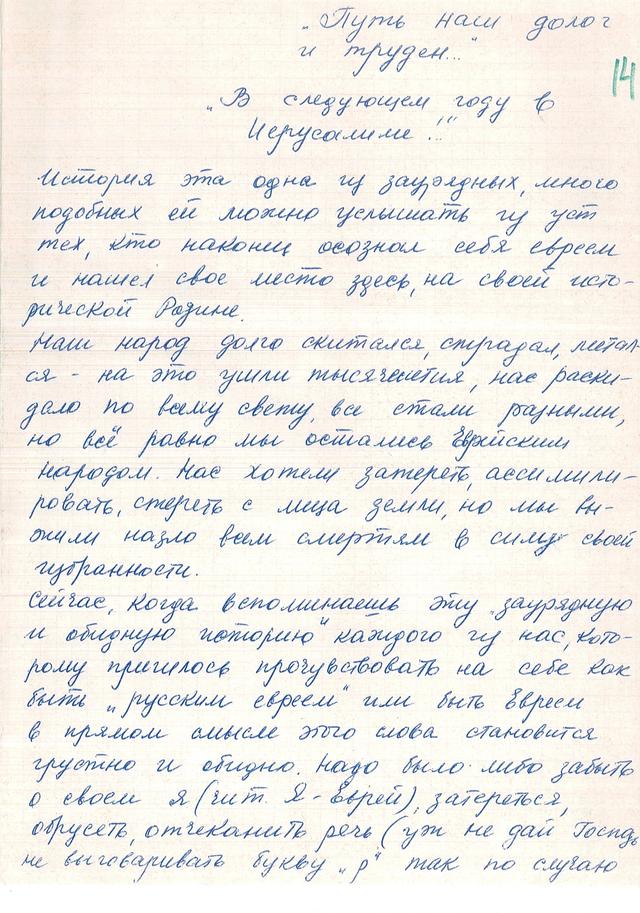 „Путь наш долог
и труден..."
14
„В следующем году в
Иерусалиме!.."
История эта одна из заурядных, много
подобных ей можно услышать из уст
тех, кто наконец осознал себя евреем
и нашел свое место здесь, на своей исто-
рической Родине.
Наш народ долго скитался, страдал, метал-
ся - на это ушли тысячелетия, нас раски-
дало по всему свету, все стали разными,
но всё равно мы остались Еврейским
народом. Нас хотели затереть, ассимили-
ровать, стереть с лица земли, но мы вы-
жили назло всем смертям в силу своей
избранности.
Сейчас, когда вспоминаешь эту „заурядную
и обидную историю" каждого из нас, кото-
рому пришлось прочувствовать на себе как
быть „русским евреем" или быть Евреем
в прямом смысле этого слова становится
грустно и обидно. Надо было либо забыть
о своем Я (чит. Я - Еврей), затереться,
обрусеть, отчеканить речь (уж не дай Господь
не выговаривать букву „р" так по случаю